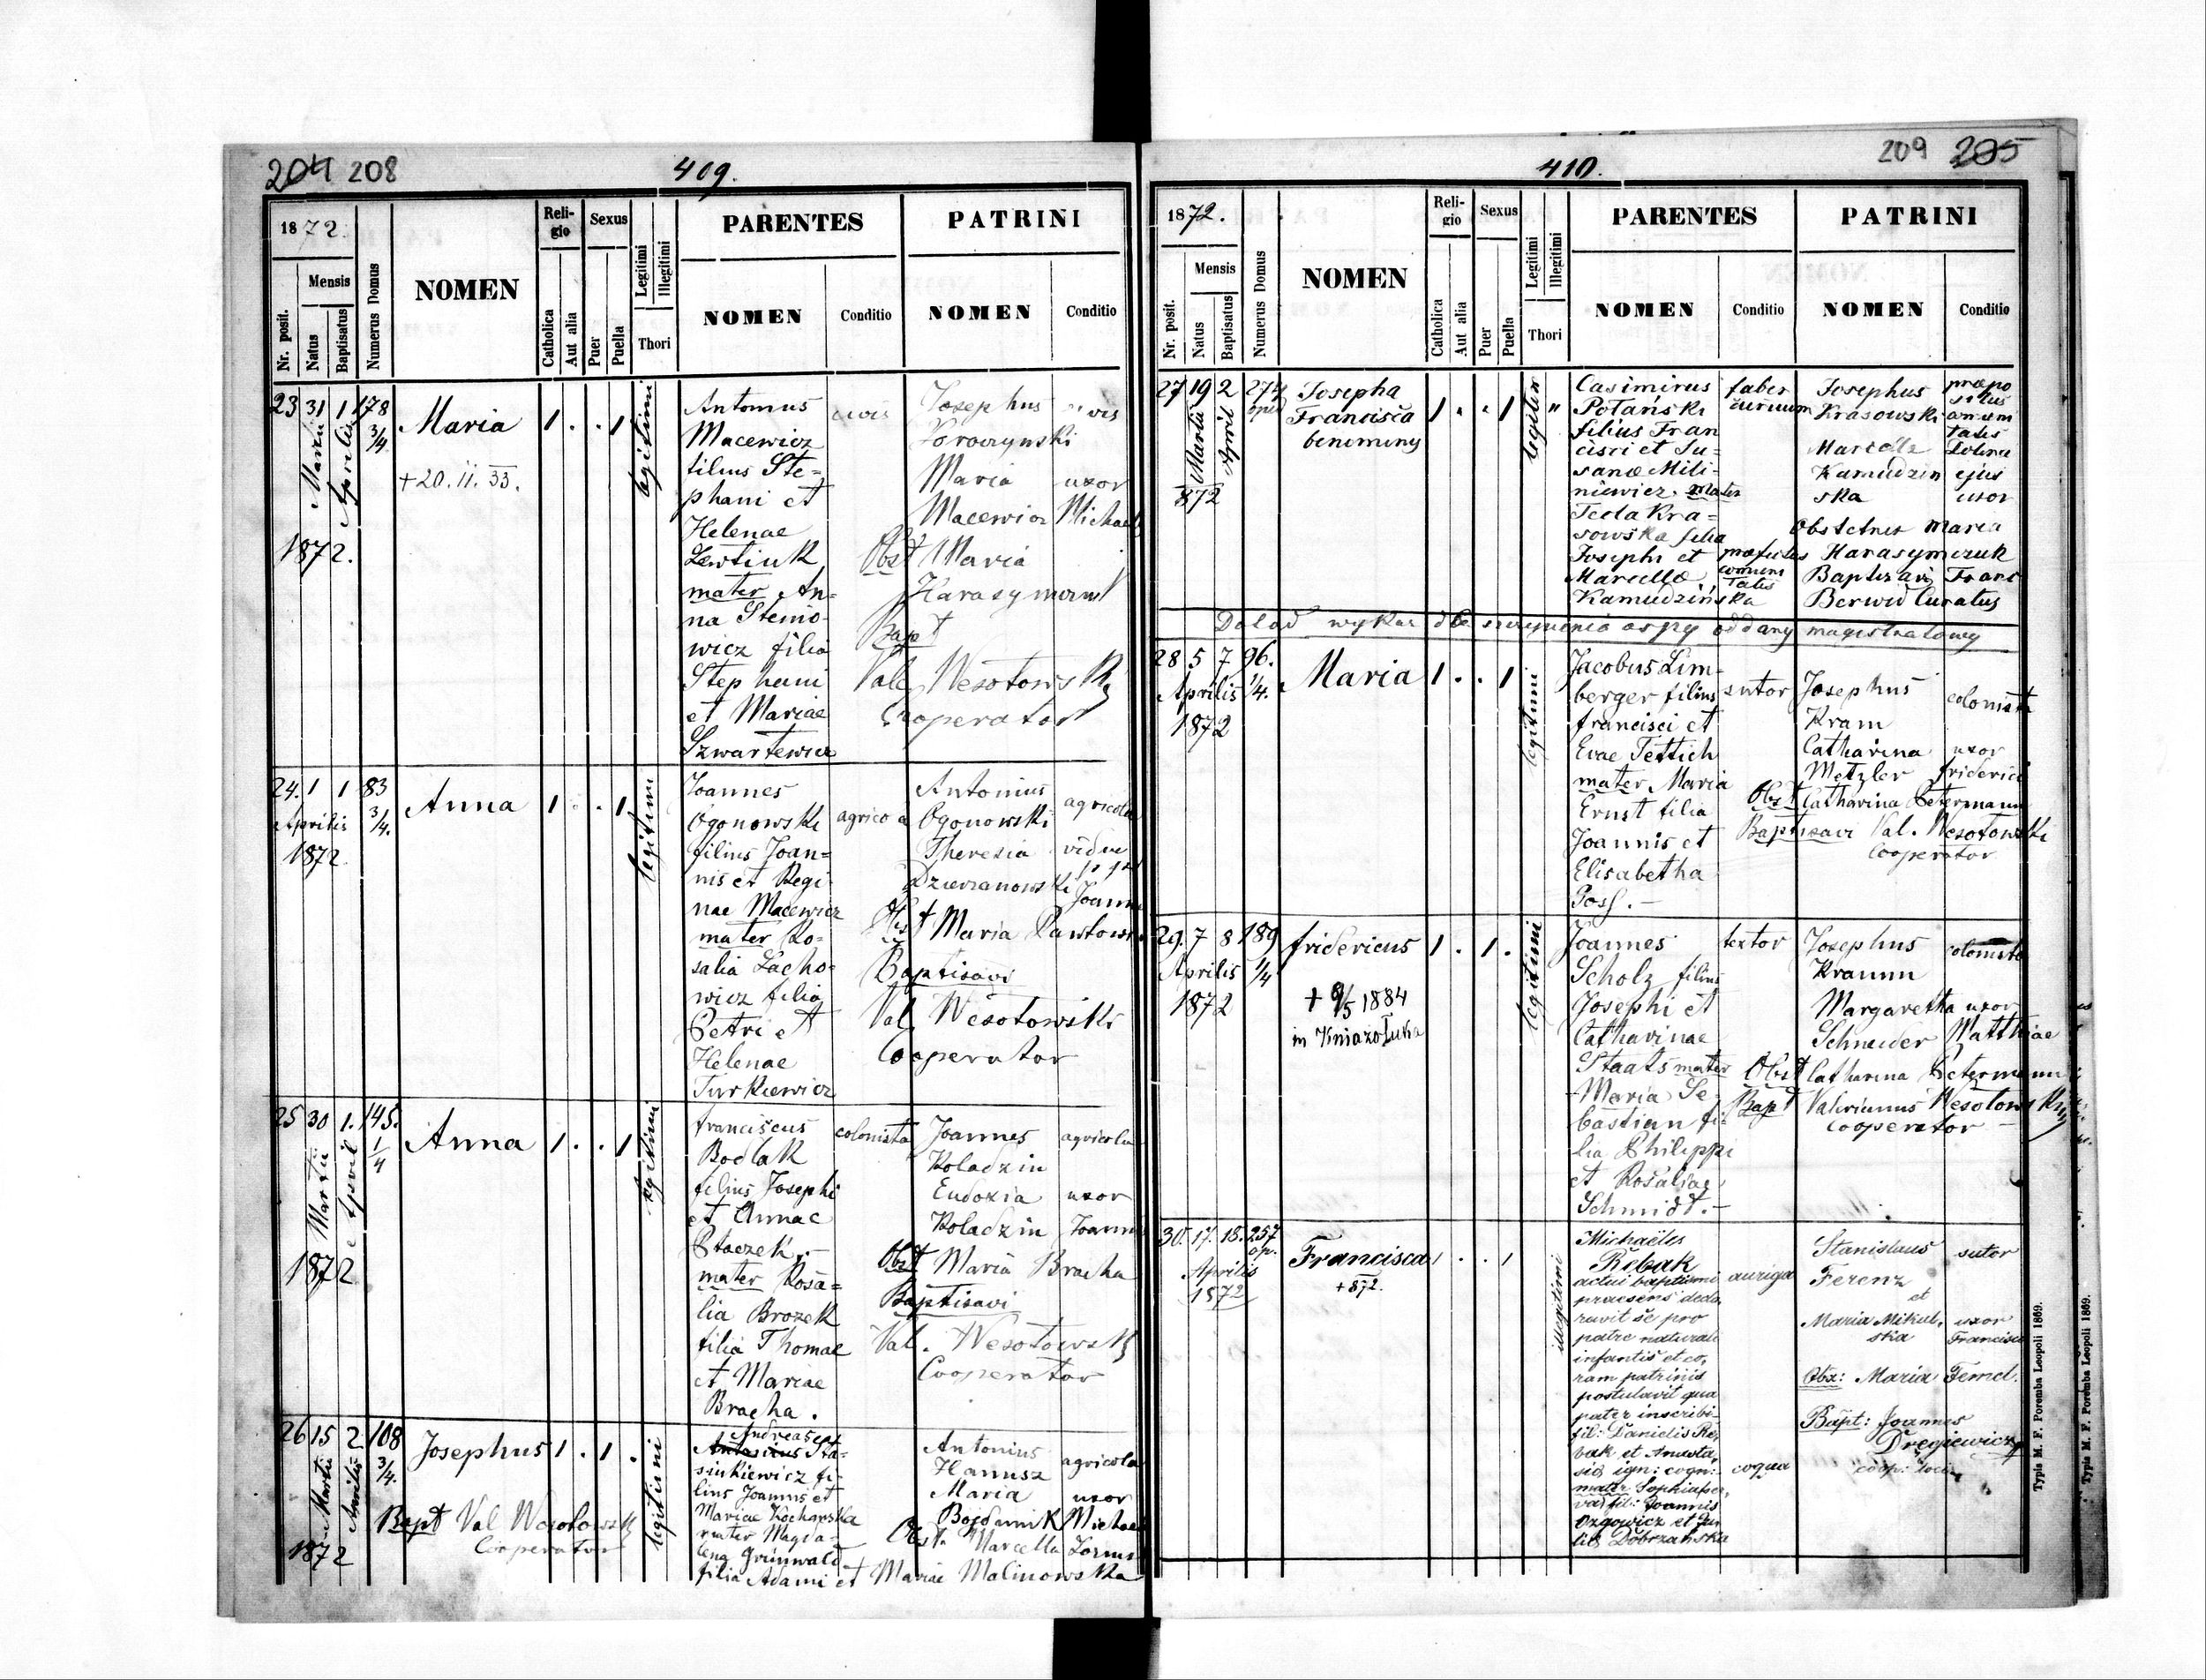 204 208
409.
1872.
Nr. posit.
Mensis
Natus
Baptisatus
Numerus Domus
NOMEN
Reli-
gio
Catholica
Aut alia
Sexus
Puer
Puella
Legitimi
Illegitimi
Thori
PARENTES
NOMEN
Conditio
PATRINI
NOMEN
Conditio
23 31 1 178
3/4
Martii
Aprilis
1872.
Maria
+20.11.33.
1 . . 1
legitimi
Antonius
Macewicz
filius Ste=
phani et
Helenae
mater An=
na
wicz filia
Stephani
et Mariae
Szwartewicz
civis
Josephus
civis
Maria uxor
Macewicz Michaeli
Obst Maria
Bapt
Val Wesołowski
Cooperator
24. 1 1 83
3/4.
Aprilis
1872
Anna
1 . . 1
legitimi
Joannes
Ogonowski
filius Joan=
nis et Regi
nae Macewicz
mater Ro=
salia Lacho=
wicz filia
Petri et
Helenae
Turkiewicz
Antonius
Ogonowski
agricola
Theresia
Joannis
Obst Maria
Baptisavi
Val Wesołowski
Cooperator
25 30 1. 145.
1/4
Martii
April
1872
Anna
1 . . 1
legitimi
Franciscus
Bodlak
filius Josephi
et Annae
Ptaczek.-
mater Rosa=
lia Brozek
filia Thomae
et Mariae
Bracha.
colonista
Joannes agricola
Koladzin
Eudoxia uxor
Koladzin Joannis
Obst Maria Bracha
Baptisavi
Val. Wesołowski
Cooperator
26 15 2 108
3/4.
Martii
Aprilis
1872
Josephus
1 . 1 .
legitimi
Bapt Val Wesołowski
Cooperator
Andreas
Sta=
siukiewicz fi-
lius Joannis et
Mariae
mater Magda-
lena Grünwald
filia Adami et Mariae Malinowska
Antonius
Hanusz
agricola
Maria uxor
Michaeli
Obst. Marcella
209 205
410.
1872.
Nr. posit.
Mensis
Natus
Baptisatus
Numerus Domus
NOMEN
Reli-
gio
Catholica
Aut alia
Sexus
Puer
Puella
Legitimi
Illegitimi
Thori
PARENTES
NOMEN
Conditio
PATRINI
NOMEN
Conditio
27 19 2 274
Martii
April
872
Josepha
Francisca
benominy
1 . . 1
legitim "
Casimirus
Potański
filius Fran
cisci et Su=
sanæ Mili-
niewicz. mater
Tecla Kra=
sowska filia
Josephi et
Marcellæ
Kamudzińska
faber
Josephus
Krasowski
Marcella
Kamudzin
ska
ejus
uxor
Obstetrix Maria
Harasymczuk
Baptisavi Franc
Berwid Curatus
oddany magistratowy
28 5 7 96.
1/4.
Aprilis
1872
Maria
1 . . 1
legitimi
Jacobus Lim-
berger filius
Francisci et
Evae Tettich
mater Maria
Ernst filia
Joannis et
Elisabetha
Poss.-
sutor
Josephus
Kram
colonista
Catharina uxor
Metzler Friderici
Obst Catharina Petermann
Baptisavi Val. Wesołowski
Cooperator
29. 7 8 189
1/4
Aprilis
1872
Fridericus
+ 8/5 1884
in Kniazołuka
1 . 1 .
legitimi
Joannes
Scholz filius
Josephi et
Catharinae
Staats mater
Maria Se
bastian fi-
lia Philippi
et Rosaliae
Schmidt.-
textor
Josephus
Kramm
colonista
Margaretha uxor
Schneider Matthiae
Obst Catharina Petermann
Bapt Valerianus Wesołowski
Cooperator
30. 17. 18. 257
op.
Aprilis
1872
Francisca
+872.
1 . . 1
illegitimi
Michaëlis
Rebak
actui baptismi
praesens decla,
ravit se pro
patre naturali
infantis et co,
ram patrinis
postulavit qua
pater inscribi-
fil: Danielis Re,
bak et Anasta,
siæ ign: cogn:-
mater Sophia
fil: Joannis
Ozgowicz et Ju
liæ Dobrzańska
auriga
coqua
Stanislaus
Ferenz
et
sutor
Maria Mikul,
ska
uxor
Francisci
Obst: Maria Femel.
Bapt: Joannes
Dręgiewicz
coop: loci
Typis M. F. Poremba Leopoli 1869.
Typis M. F. Poremba Leopoli 1869.